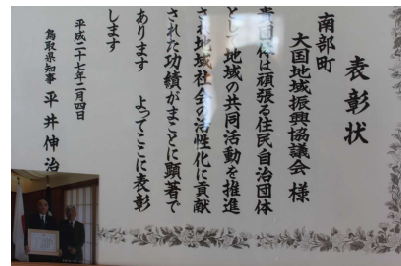 表彰状
南部町
大国地域振興協議会 様
貴団体は頑張る住民自治団体
として地域の共同活動を推進
され地域社会の活性化に貢献
された功績がまことに顕著で
あります よってここに表彰
します
平成二十七年二月四日
鳥取県知事 平井伸治